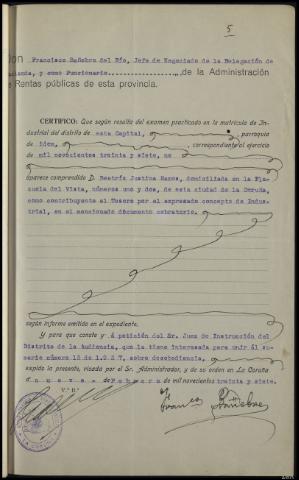 5
Francisco Bañobre del Río, Jefe de Negociado de la Delegación de
y como Funcionario de la Administración
Rentas públicas de esta provincia.
CERTIFICO: Que según resulta del examen practicado en la matrícula de In-
dustrial del distrito de esta Capital, parroquia
de idem, correspondiente al ejercicio
de mil novecientos treinta y siete, no
aparece comprendido D. Beatriz Justina Ramos, domiciliada en la Pla-
números uno y dos, de esta ciudad de la Coruña,
como contribuyente al Tesoro por el expresado concepto de Indus-
trial, en el mencionado documento cobratorio.
según informe emitido en el expediente.
Y para que conste y á petición del Sr. Juez de Instrucción del
Distrito de la Audiencia, que la tiene interesada para unir al su-
mario número 12 de 1937, sobre desobediencia,
expido la presente, visada por el Sr. Administrador, y de su orden en La Coruña
a nueve de Febrero de mil novecientos treinta y siete.
V.º B.º